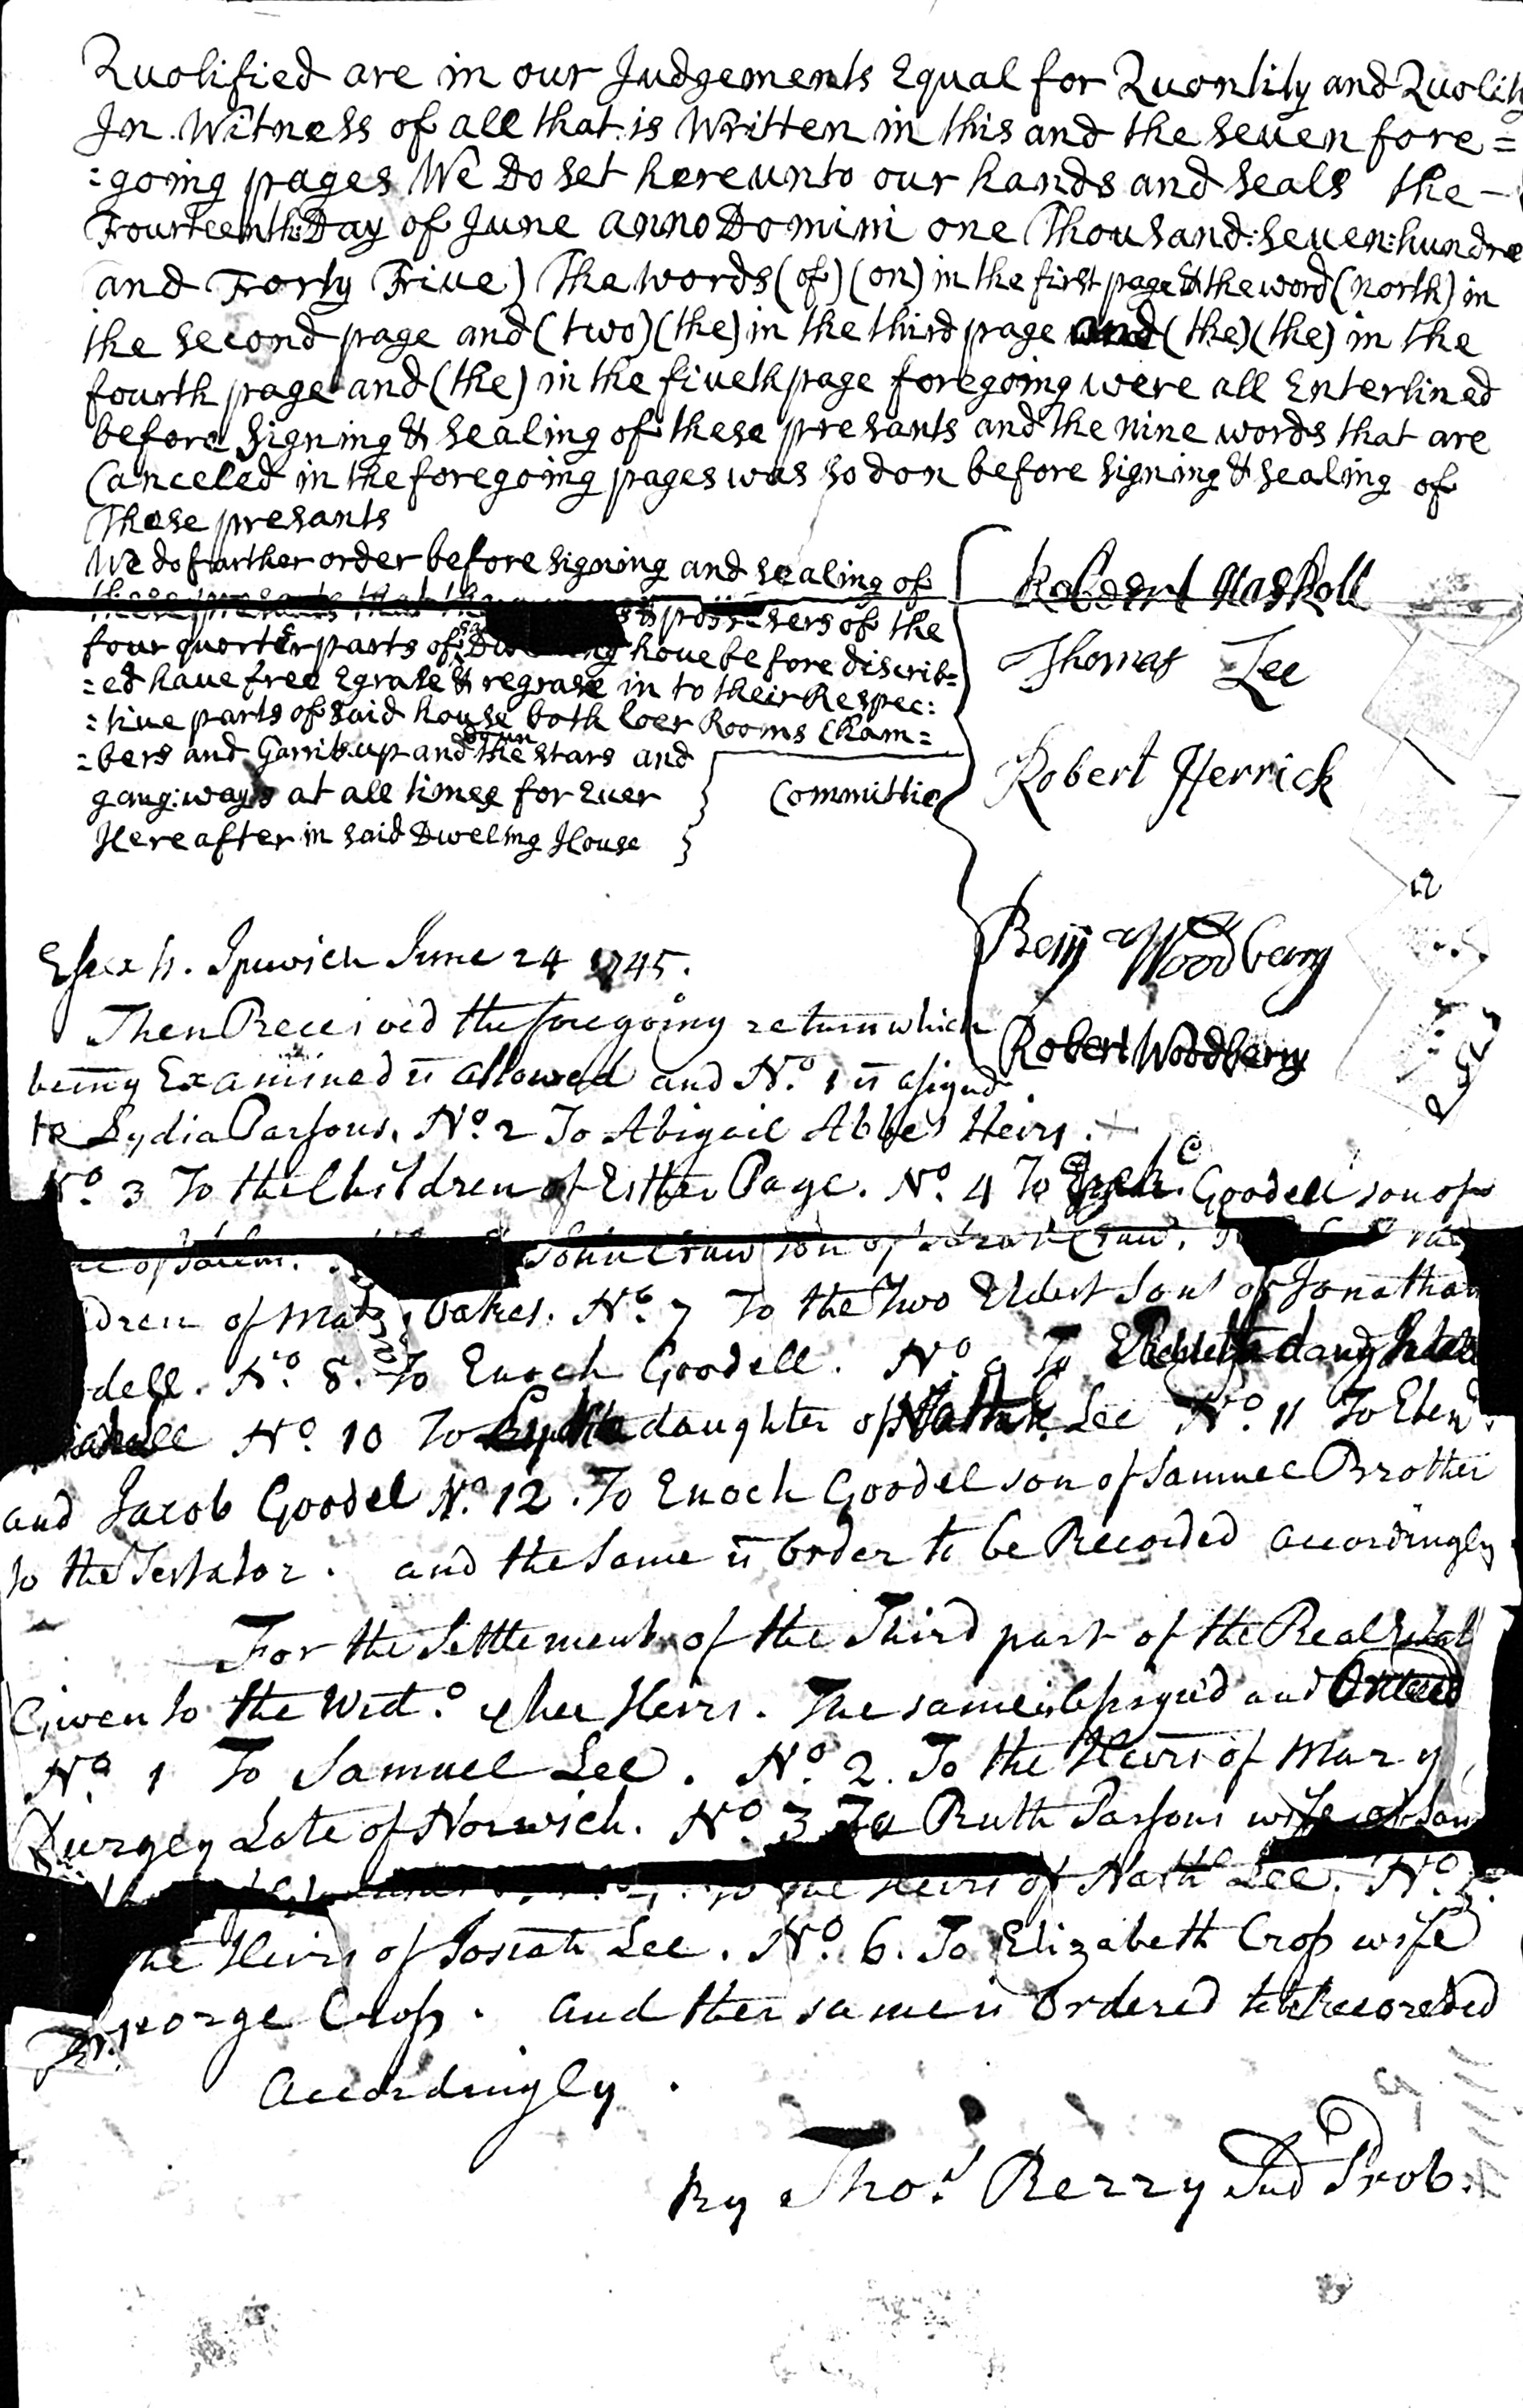 Quolified are in our Judgements Equal for Quontity and Quolity
In Witness of all that is Written in this and the seuen fore=
=going pages We Do set hereunto our hands and seals the
Fourteenth Day of June anno Domini one Thousand:seuen:hundre
and Forty Friue) The words (of) (on) in the first page & the word (north) in
the second page and (two) (the) in the third page and (the) (the) in the
fourth page and (the) in the fiueth page foregoing were all Enterlined
before signing & sealing of these presants and the nine words that are
Canceled in the foregoing pages was so don before signing & sealing of
These presants
We do farther order before signing and sealing of
these presants that the
four quorter parts of house before discrib=
=ed haue free Egrase & regrase in to their Respec:
=tiue parts of said house both loer Rooms Cham=
=bers and Garrits up and down the stars and
gang:ways at all times for Euer
Hereafter in said Dweling House
Committie
Robert Haskoll
Thomas Lee
Robert Herrick
Benj Woodbery
Robert Woodbery
Essex ss. Ipswich June 24 1745.
Then Received the foregoing return which
being Examined is allowed and No. 1 is asignd
to Lydia Parsons, No. 2 To Abigail Abbes Heirs.
No. 3 To the Children of Esther Page. No. 4 To Goodell son of
of Salem. John son of
dren of Oakes. No. 7 To the Two Eldest sons of Jonathan
dell. No. 8. To Enoch Goodell. No. 9 To daughter
No. 10 To daughter of Lee No. 11 To Eben.
and Jacob Goodel No. 12. To Enoch Goodel son of Samuel Brother
to the Testator. and the same is Order to be Recorded accordingly
For the Settlement of the Third part of the Real Estate
Given to the Wido. & her Heirs. The same is Assigned and Ordered
No. 1 To Samuel Lee. No. 2. To the Heirs of Mary
Durgey Late of Norwich. No. 3 To Ruth Parsons wife of
To the Heirs of Nathl Lee. No. 5.
the Heirs of Josiah Lee. No. 6. To Elizabeth Cross wife
George Cross. and the same is Ordered to be Recorded
Accordingly.
By Thos. Berry Jud Prob.